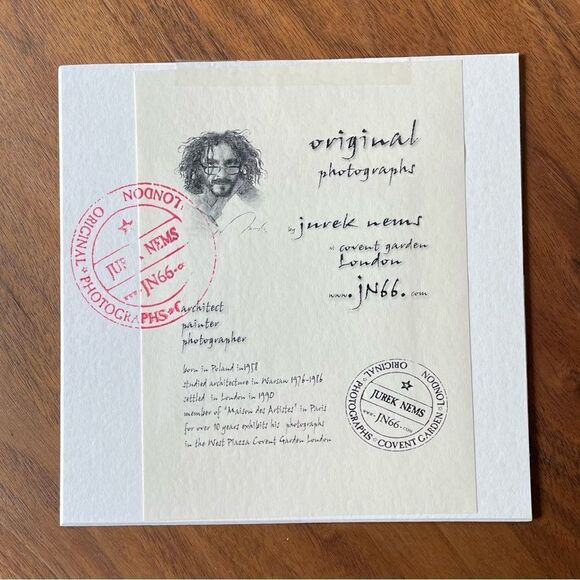 original
photographs
by jurek nems
at covent garden
London
www.jN66.com
architect
painter
photographer
born in Poland in1958
studied architecture in Warsaw 1976-1986
settled in London in 1990
member of "Maison des Artistes" in Paris
for over 10 years exhibits his photographs
in the West Piazza Covent Garden London
ORIGINAL ★ PHOTOGRAPHS ★ C
LONDON
JUREK NEMS
www.JN66.c
ORIGINAL ★ PHOTOGRAPHS ★ COVENT GARDEN ★ LONDON
JUREK NEMS
www.JN66.com